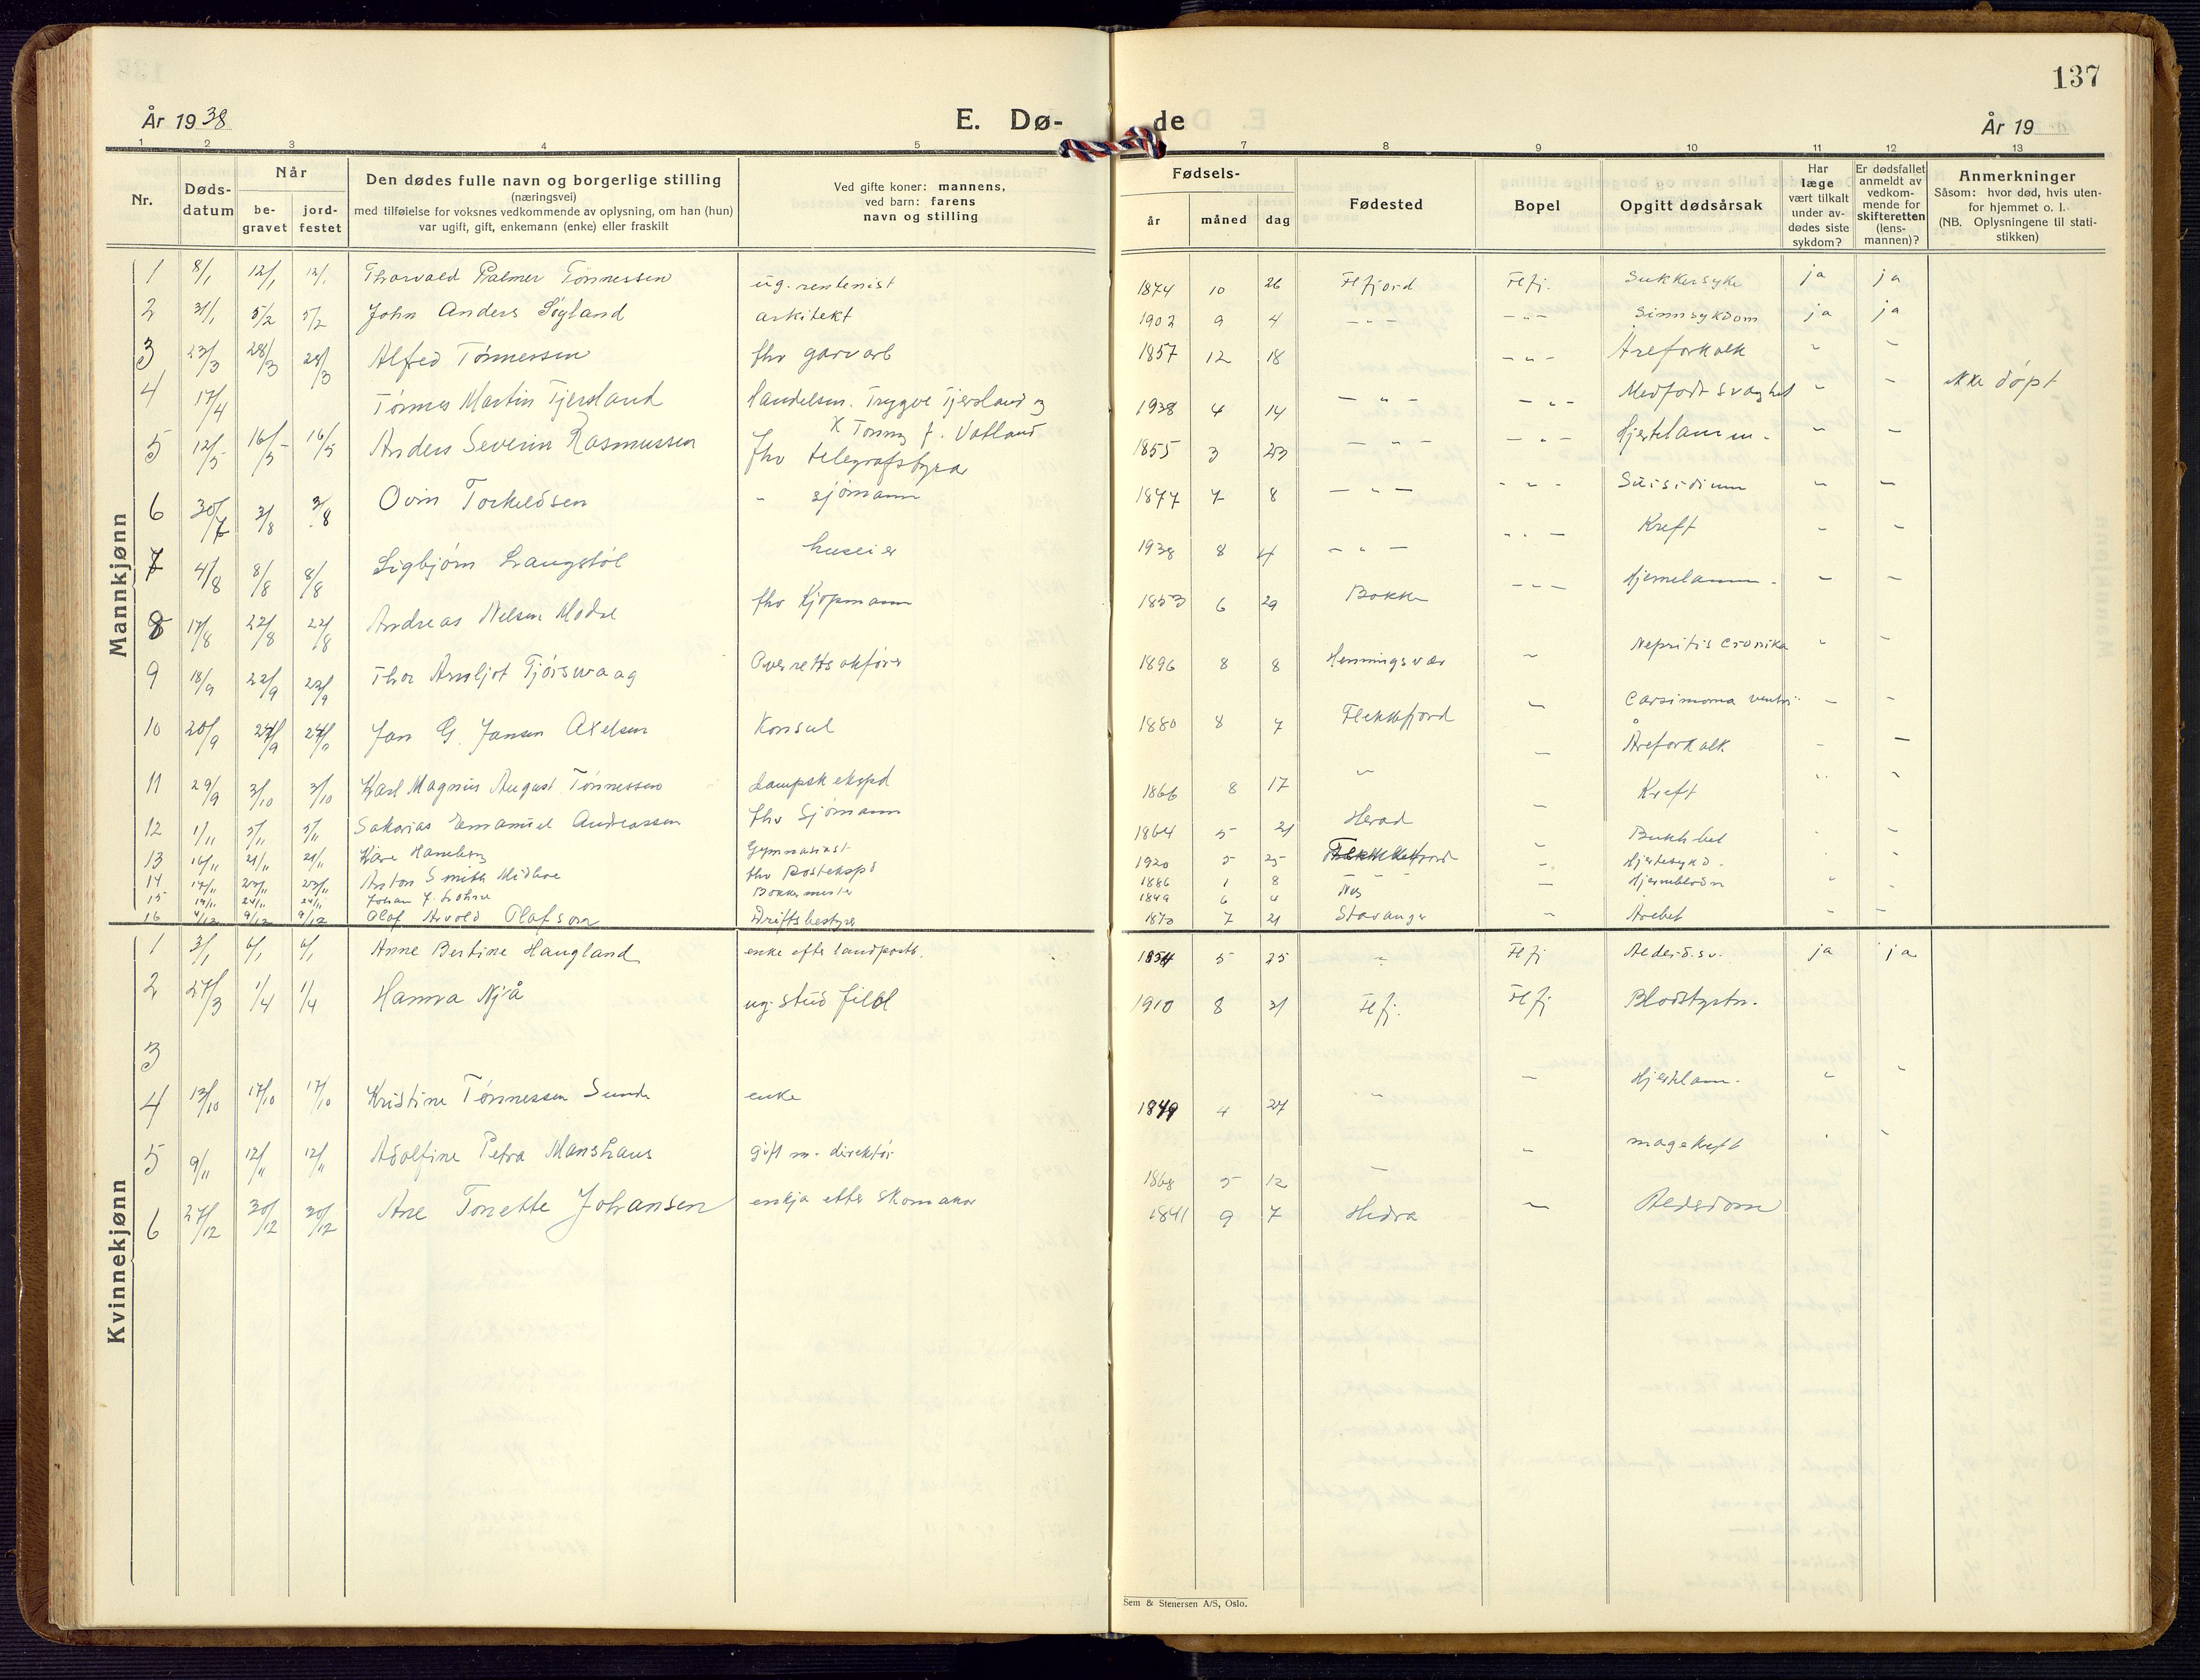 137
År 1938
E. Dø-
de
År 19
1 2 3 4 5 7 8 9 10 11 12 13
Nr.
Døds-
datum
Når
be-
gravet
jord-
festet
Den dødes fulle navn og borgerlige stilling
(næringsvei)
med tilføielse for voksnes vedkommende av oplysning, om han (hun)
var ugift, gift, enkemann (enke) eller fraskilt
Ved gifte koner: mannens,
ved barn: farens
navn og stilling
Fødsels-
år
måned
dag
Fødested
Bopel
Opgitt dødsårsak
Har
læge
vært tilkalt
under av-
dødes siste
sykdom?
Er dødsfallet
anmeldt av
vedkom-
mende for
skifteretten
(lens-
mannen)?
Anmerkninger
Såsom: hvor død, hvis uten-
for hjemmet o. l.
(NB. Oplysningene til stati-
stikken)
Mannkjønn
1 8/1 12/1 12/1 Thorvald Palmer Tønnessen ug. rentenist 1874 10 26 Flfjord Flfj. Sukkersyke ja ja
2 31/1 5/2 5/2 John Anders Søyland arkitekt 1902 9 4 - " - - " - Sinnsykdom ja ja
3 23/3 28/3 28/3 Alfred Tønnessen fhv garvarb 1857 12 18 - " - Åreforkalk " "
4 17/4 Tønnes Martin Tjersland Handelsm. Trygve Tjersland og 1938 4 14 - " - - " - Medfødt svaghet " - ikke døpt
K Tonny f. Vatland
5 12/5 16/5 16/5 Anders Severin Rasmussen fhv telegrafstyra 1855 3 23 - " - - " - Hjertelamm. " -
6 30/7 3/8 3/8 Ovin Torkeldsen " sjømann 1877 7 8 - " - - " - Suisidium - -
7 4/8 8/8 8/8 Sigbjørn Langstøl huseier 1938 8 4 - " - - " - Kreft - -
8 17/8 22/8 22/8 Andreas Nelsen Modre fhv Kjøpmann 1853 6 29 Bakke - - - Hjernelamm. - -
9 18/9 22/9 22/9 Thor Arnljot Tjørswaag Overrettsakfører 1896 8 8 Henningsvær - Nepritis Cronika " -
10 20/9 24/9 24/9 Jan G. Jansen Axelsen Konsul 1880 8 7 Flekkefjord - Carsimoma ventri. - -
11 29/9 3/10 3/10 Karl Magnus August Tønnessen Dampsk ekspd 1866 8 17 " - Åreforkalk - -
12 1/11 5/11 5/11 Sakarias Emanuel Andreassen fhv Sjømann 1864 5 21 Herad - Kreft " "
13 16/11 21/11 21/11 Kåre Haneberg Gymnasiast 1920 5 25 - Bukhbet
14 17/11 23/11 23/11 Anton Smith Midbøe fhv Postekspd 1886 1 8 - Hjertesykd.
15 19/11 24/11 24/11 Johan f. Bøkkermester 1849 6 4 Nes - Hjerneblødn
16 4/12 9/12 9/12 Olaf Arvold Olafsson Driftsbestyrer 1873 7 21 Stavanger - Årebet " -
Kvinnekjønn
1 3/1 6/1 6/1 Anne Bertine Haugland enke efter landpostb. 1854 5 25 " Flfj Alders.sv. ja ja
2 27/3 1/4 1/4 Hanna Njå ug. stud filol 1910 8 31 Flfj. Flfj Blodstyrtn.
3
4 13/10 17/10 17/10 Kristine Tønnessen Sunde enke 1849 4 27 " - Hjertelam. " "
5 9/11 12/11 12/11 Adolfine Petra Manshaus gift m. direktør 1868 5 12 - - magekreft " "
6 27/12 30/12 30/12 Ane Tonette Johansen enkja etter skomakar 1841 9 7 Hidra - Aldsdom
Sem & Stenersen A/S, Oslo.